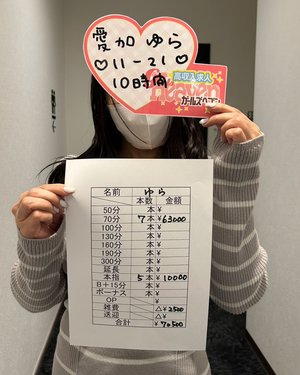 愛加 ゆら
♡11-21♡
10時間
高収入求人
heaven
ガールズヘブン
名前 ゆら
本数 金額
50分 本 ¥
70分 7本 ¥63000
100分 本 ¥
130分 本 ¥
160分 本 ¥
190分 本 ¥
300分 本 ¥
延長 本 ¥
本指 5本 ¥10000
B+15分 本 ¥
ボーナス 本 ¥
OP ¥
雑費 △¥2500
送迎 △¥
合計 ¥70500